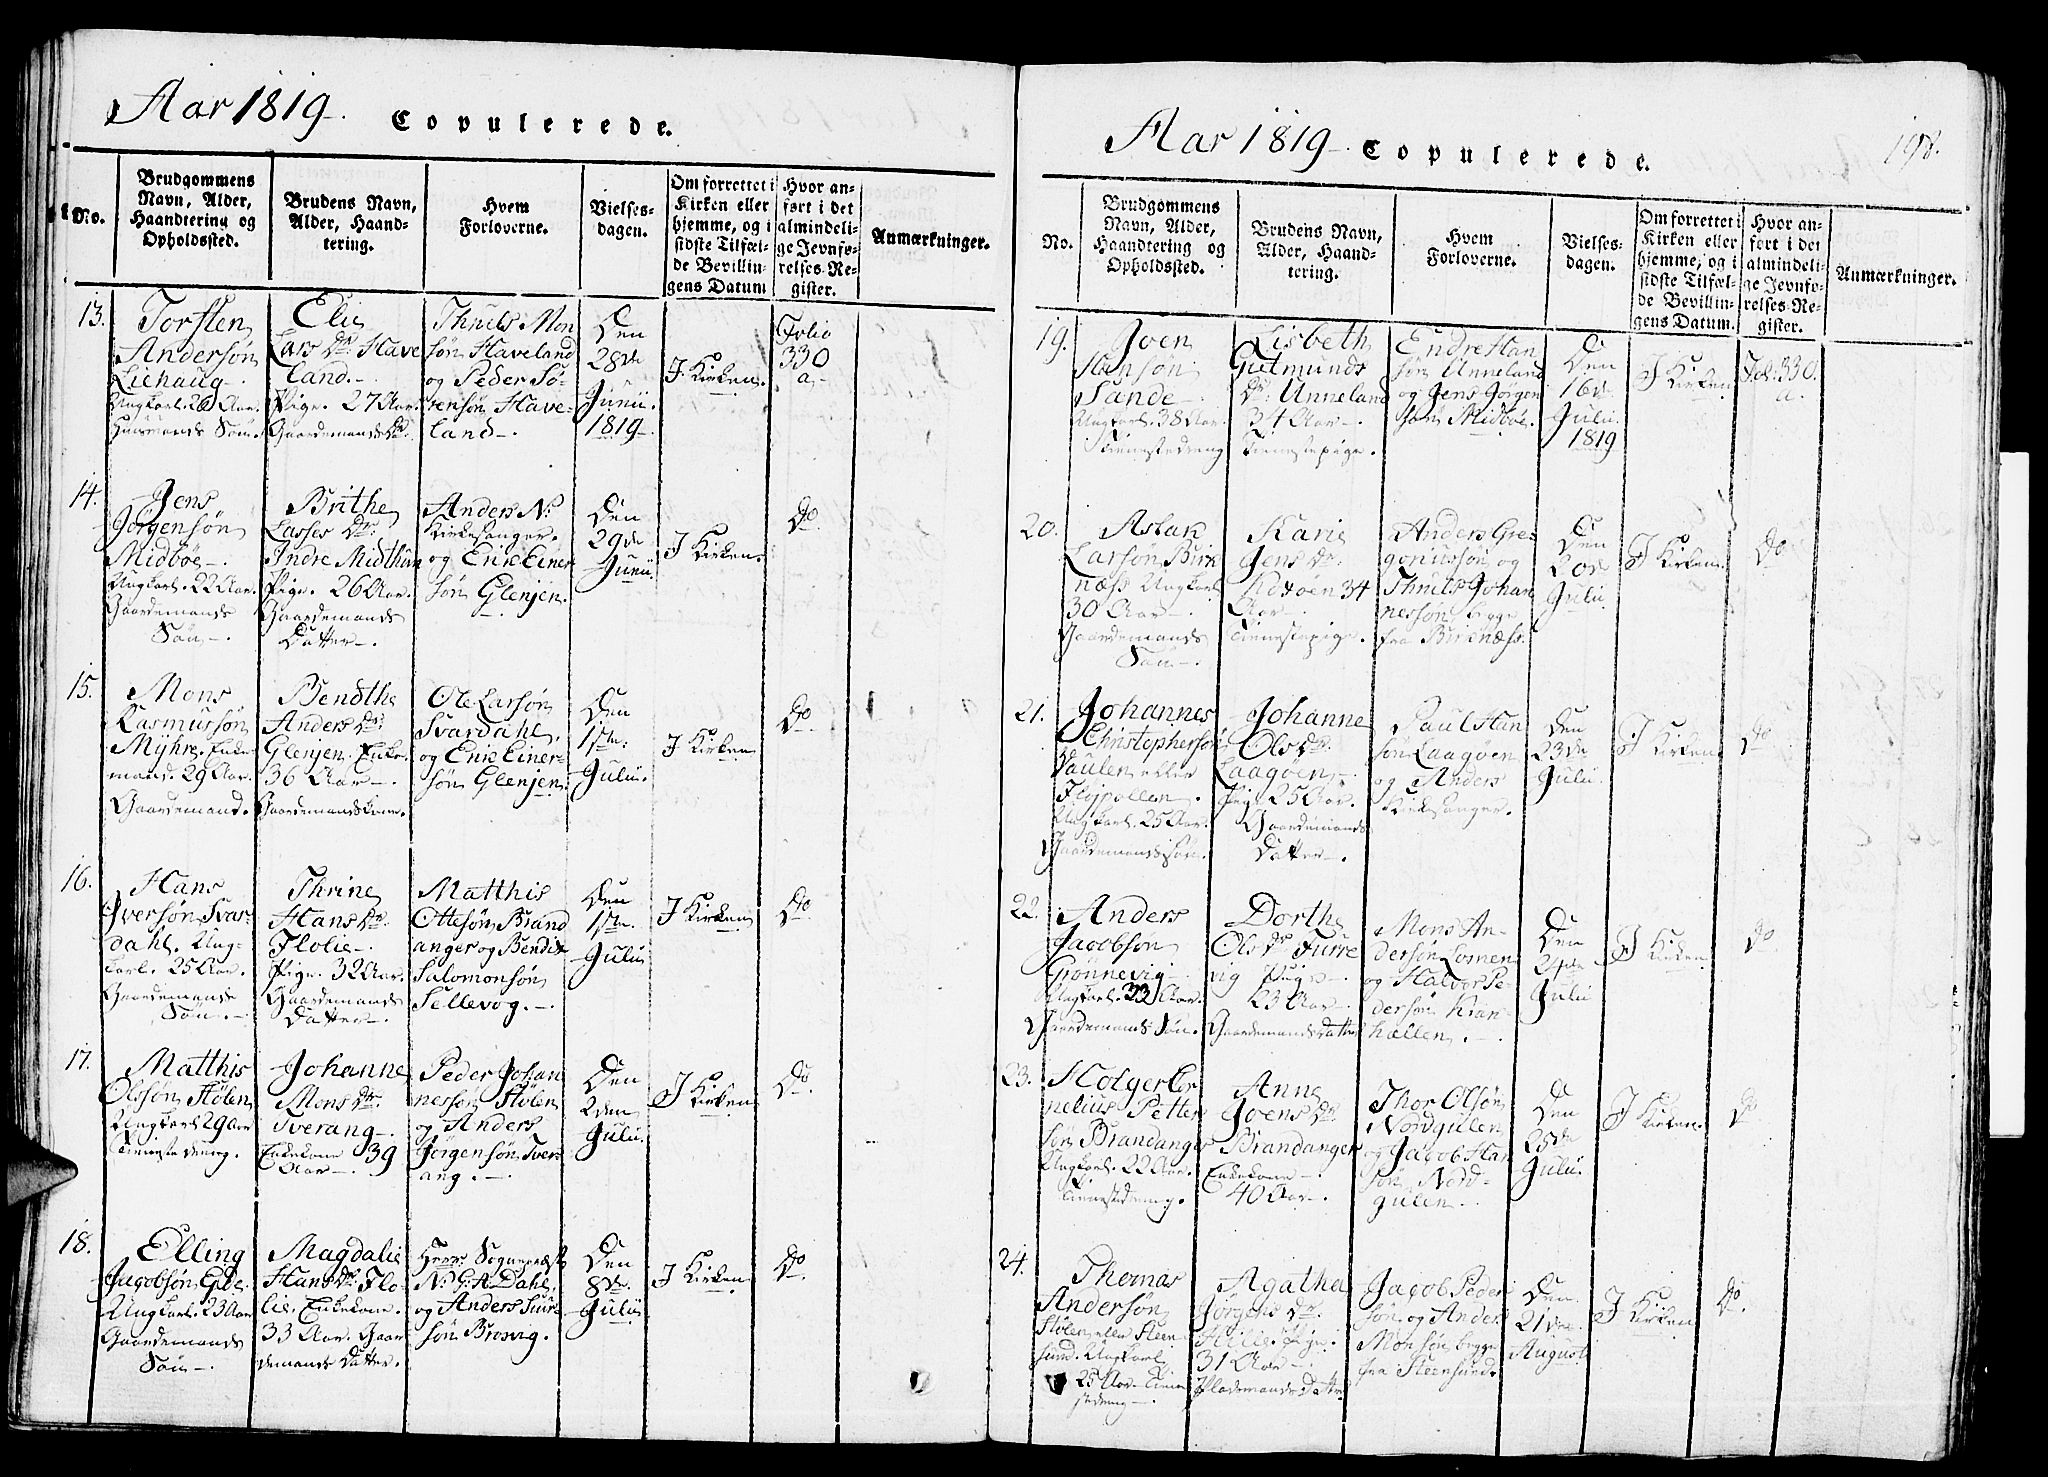 Aar 1819. Copulerede.
No.
Brudgommens
Navn, Alder,
Haandtering og
Opholdssted.
Brudens Navn,
Alder, Haand-
tering.
Hvem
Forloverne.
Vielses-
dagen.
Om forrettet i
Kirken eller
hjemme, og i
sidste Tilfæl-
de Bevillin-
gens Datum
Hvor an-
ført i det
almindeli-
ge Jevnfø-
relses-Re-
gister.
Anmærkninger.
13.
Torsten
Andersøn
Liehaug.
Ungkarl. 26 Aar.
Huusmands Søn.
Elie
Lars Dr. Have
land.
Pige. 27 Aar.
Gaardemands Dr.
Thuils Mon
søn Haveland
og Peder Sø-
rensøn Have-
land.
Den
28de
Junii.
1819
J Kirken.
Folio
330
a.
14.
Jens
Jørgensøn
Midbøe.
Ungkarl. 22 Aar.
Gaardemands
Søn.
Brithe
Lasses Dr.
Indre Midthun
Pige. 26 Aar.
Gaardemands
Datter.
Anders N:
Kirkesanger.
og Eric Einer
søn Glenjen.
Den
29de
Junii.
J Kirken.
Do
15.
Mons
Rasmussøn
Myhre. Enke-
mand. 29 Aar.
Gaardemand.
Bendthe
Anders Dr.
Glenjen. Enke.
36 Aar.
Gaardemandskone.
Ole Larsøn
Svardahl,
og Eric Einer-
søn Glenjen.
Den
1ste
Julii.
J Kirken
Do
16.
Hans
Iversøn Svar-
dahl. Ung-
karl. 25 Aar.
Gaardemands
Søn.
Thrine
Hans Dr.
Flolie.
Pige. 32 Aar.
Gaardemands
Datter.
Matthis
Ottesøn Brand
anger og Bendix
Salomonsøn
Sellevog.
Den
1ste
Julii
J Kirken
Do
17.
Matthis
Olssøn Stølen
Ungkarl 29 Aar
Tienestedreng.
Johanne
Mons Dr.
Tverang.
Enkekone 39
Aar.
Peder Johan
nessøn Stølen
og Anders
Jørgensøn Tver
ang.
Den
2den
Julii.
J Kirken
Do
18.
Elling
Jacobsøn
Ungkarl. 23 Aar
Gaardemands
Søn.
Magdalie
Hans Dr. Flo-
lie. Enkekone.
33 Aar. Gaar
demands Datter.
Herr Sognepræst
N: G: A: Dahl,
og Anders
søn Brosvig.
Den
8de
Julii
J Kirken
Do
Aar 1819. Copulerede.
198.
No.
Brudgommens
Navn, Alder,
Haandtering og
Opholdssted.
Brudens Navn,
Alder, Haand-
tering.
Hvem
Forloverne.
Vielses-
dagen.
Om forrettet i
Kirken eller
hjemme, og i
sidste Tilfæl-
de Bevillin-
gens Datum.
Hvor an-
ført i det
almindeli-
ge Jevnfø-
relses-Re-
gister.
Anmærkninger.
19.
Joen
Hansøn
Sande.
Ungkarl. 38 Aar.
Tienestedreng
Lisbeth
Gutmunds
Dr. Unneland
34 Aar.
Tienestepige.
Endre Han
søn Unneland
og Jens Jørgen
søn Midbøe.
Den
16de
Julii.
1819
J Kirken
Fol: 330.
a.
20.
Aslak
Larsøn Birk
næss Ungkarl
30 Aar
Gaardemands
Søn.
Karie
Jens Dr.
34
Aar.
Tienestepige.
Anders Gre-
goriussøn og
Thuils Johan
nessøn, begge
fra Birknæss.
Den
20de
Julii
J Kirken.
Do
21.
Johannes
Christophersøn
Vaulen eller
Flojpollen.
Ungkarl. 25 Aar.
Gaardemandssøn.
Johanne
Ols Dr.
Laagøen.
Pige 25 Aar.
Gaardemands
Datter.
Paul Han
søn Laagøen
og Anders
Kirkesanger.
Den
23de
Julii.
J Kirken
Do
22.
Anders
Jacobsøn
Grønnevig.
Ungkarl. 33 Aar.
Gaardemands Søn.
Dorthe
Ols Dr. Furre
vig Pige
23 Aar.
Gaardemands Datter
Mons An-
dersøn Losnen
og Halvor Pe-
dersøn Kran-
hællen.
Den
24de
Julii
J Kirken
Do
23.
Holger Cor
nelius Petter
søn Brandanger
Ungkarl. 22 Aar.
Tienestedreng.
Anne
Joens Dr.
Brandanger
Enkekone
40 Aar.
Thor Olsøn
Nordgulen
og Jacob Han
søn Nord-
gulen.
Den
25de
Julii.
J Kirken.
Do
24.
Thomas
Andersøn
Stølen eller Steen-
sund. Ungkarl
25 Aar. Tiene
stedreng.
Agatha
Jørgens Dr.
Hille. Pige.
31 Aar.
Pladsmands Datter
Jacob Peder
søn og Anders
Monsøn begge
fra Steensund.
Den
21de
August
J Kirken
Do.